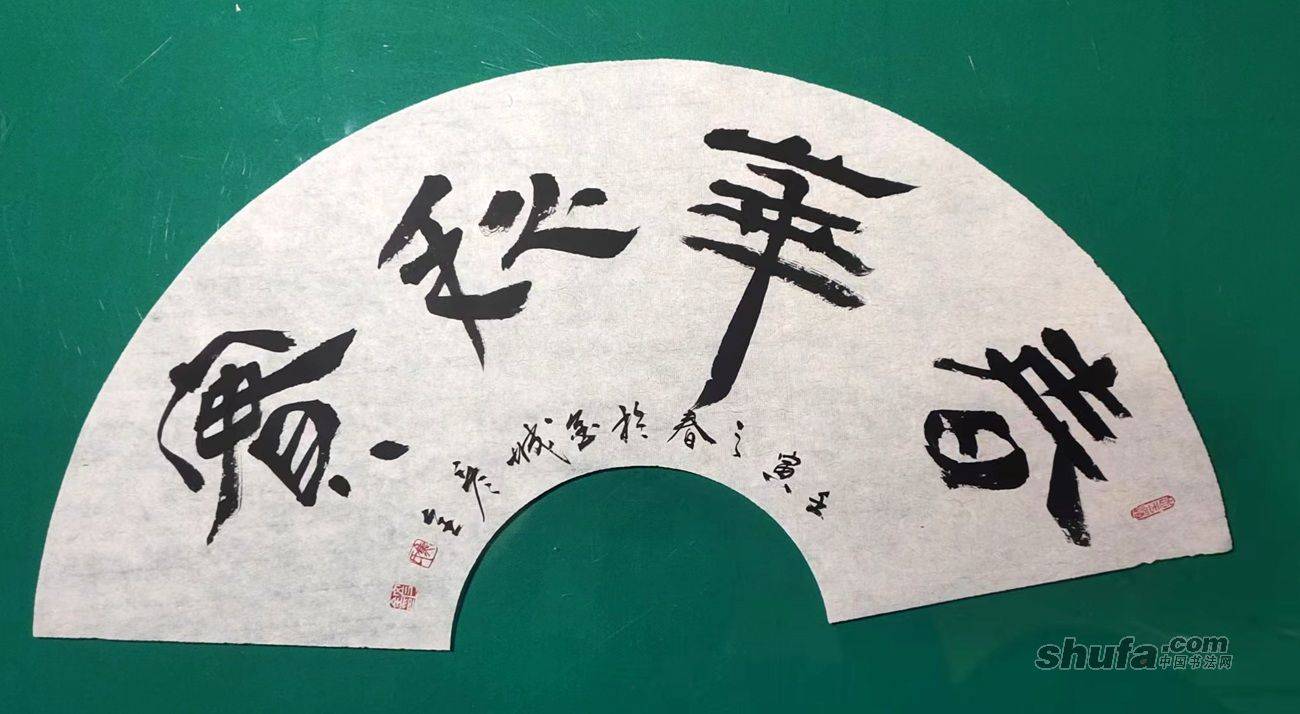 春華秋實
壬寅之春於金城
shufa.com
中国书法网